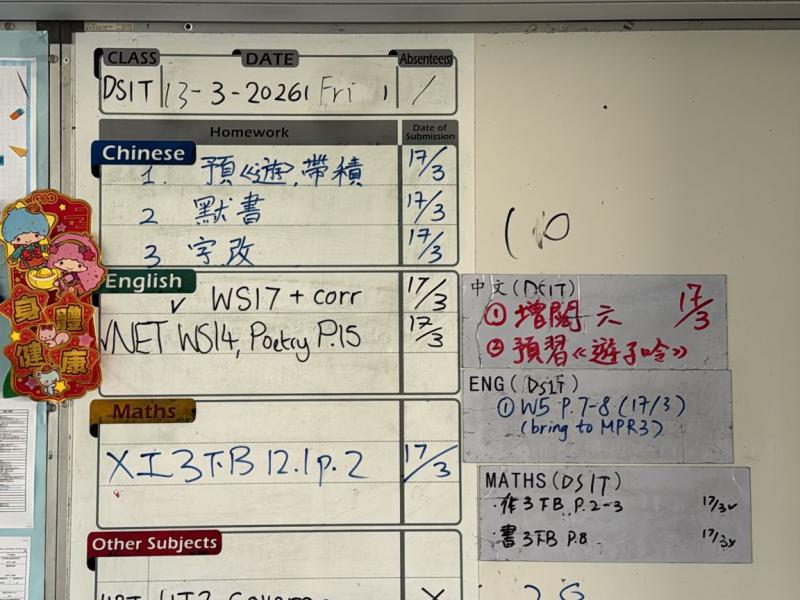 CLASS DATE Absentee(s)
DS1T 13-3-2026 Fri /
Homework Date of Submission
Chinese
1. 預《遊》,帶積 17/3
2 默書 17/3
3 字改 17/3
English
✓ WS17 + corr 17/3
✓NET WS14, Poetry P.15 17/3
Maths
工3下B 12.1 p.2 17/3
Other Subjects
身體健康
中文(DS1T)
① 增閱 六 17/3
② 預習《遊子吟》
ENG(DS1T)
① WS P.7-8 (17/3)
(bring to MPR3)
MATHS(DS1T)
·作3下B P.2-3 17/3✓
·書3下B P.8 17/3✓